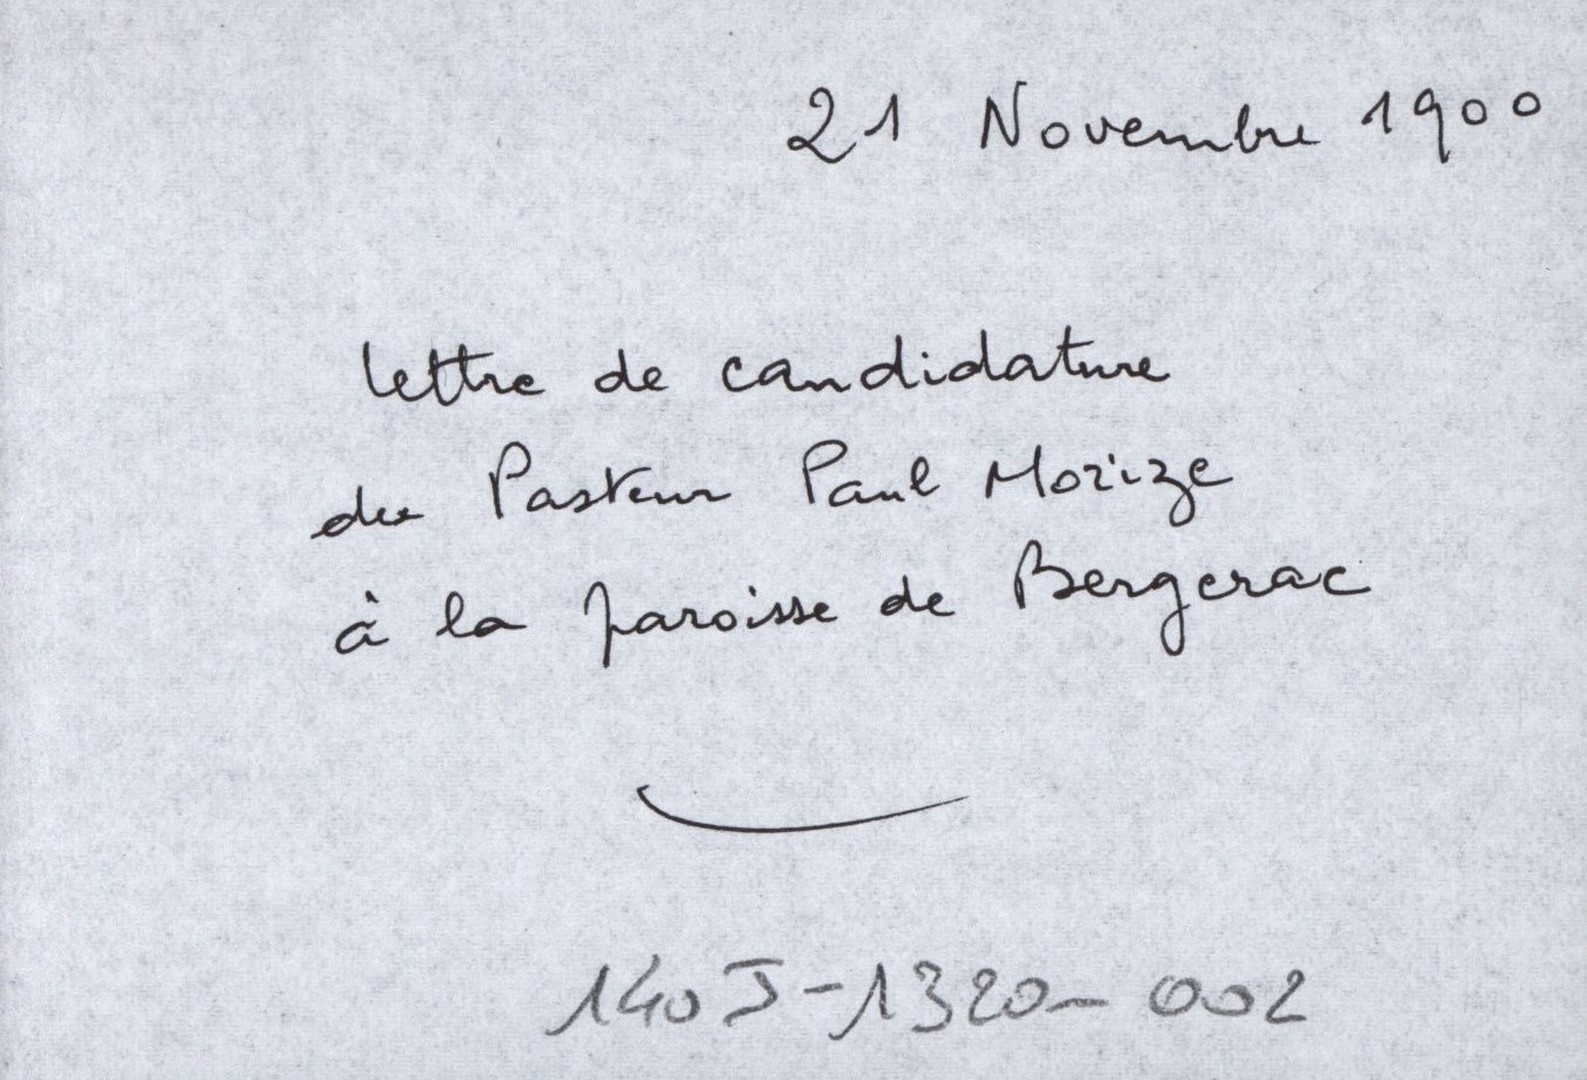 21 Novembre 1900
lettre de candidature
du Pasteur Paul Morize
à la paroisse de Bergerac
140J-1320-002